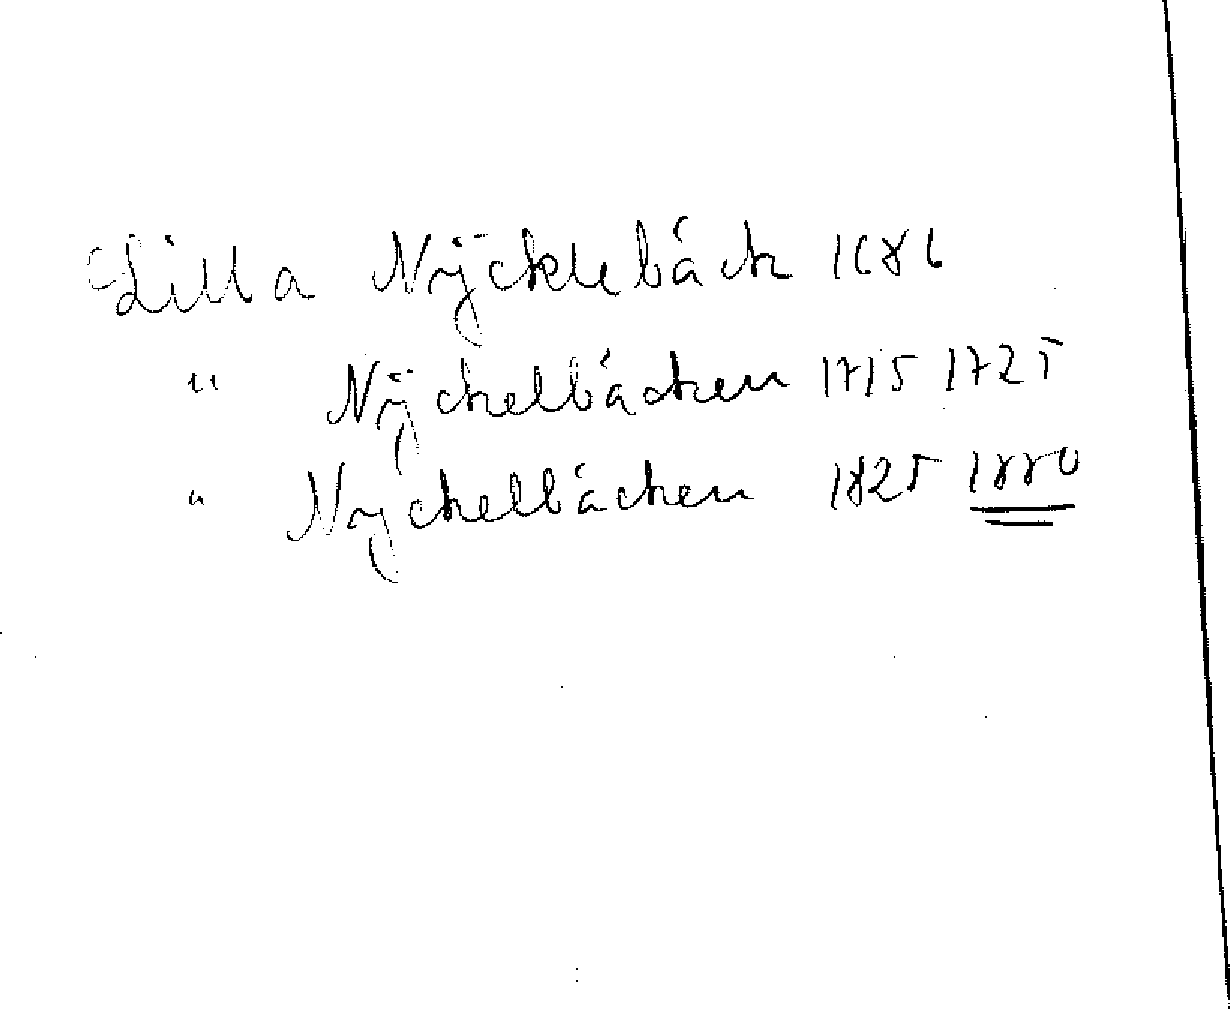 Lilla Nÿcklebäck 1686
" Nÿckelbäcken 1715 1725
" Nyckelbäcken 1825 1880